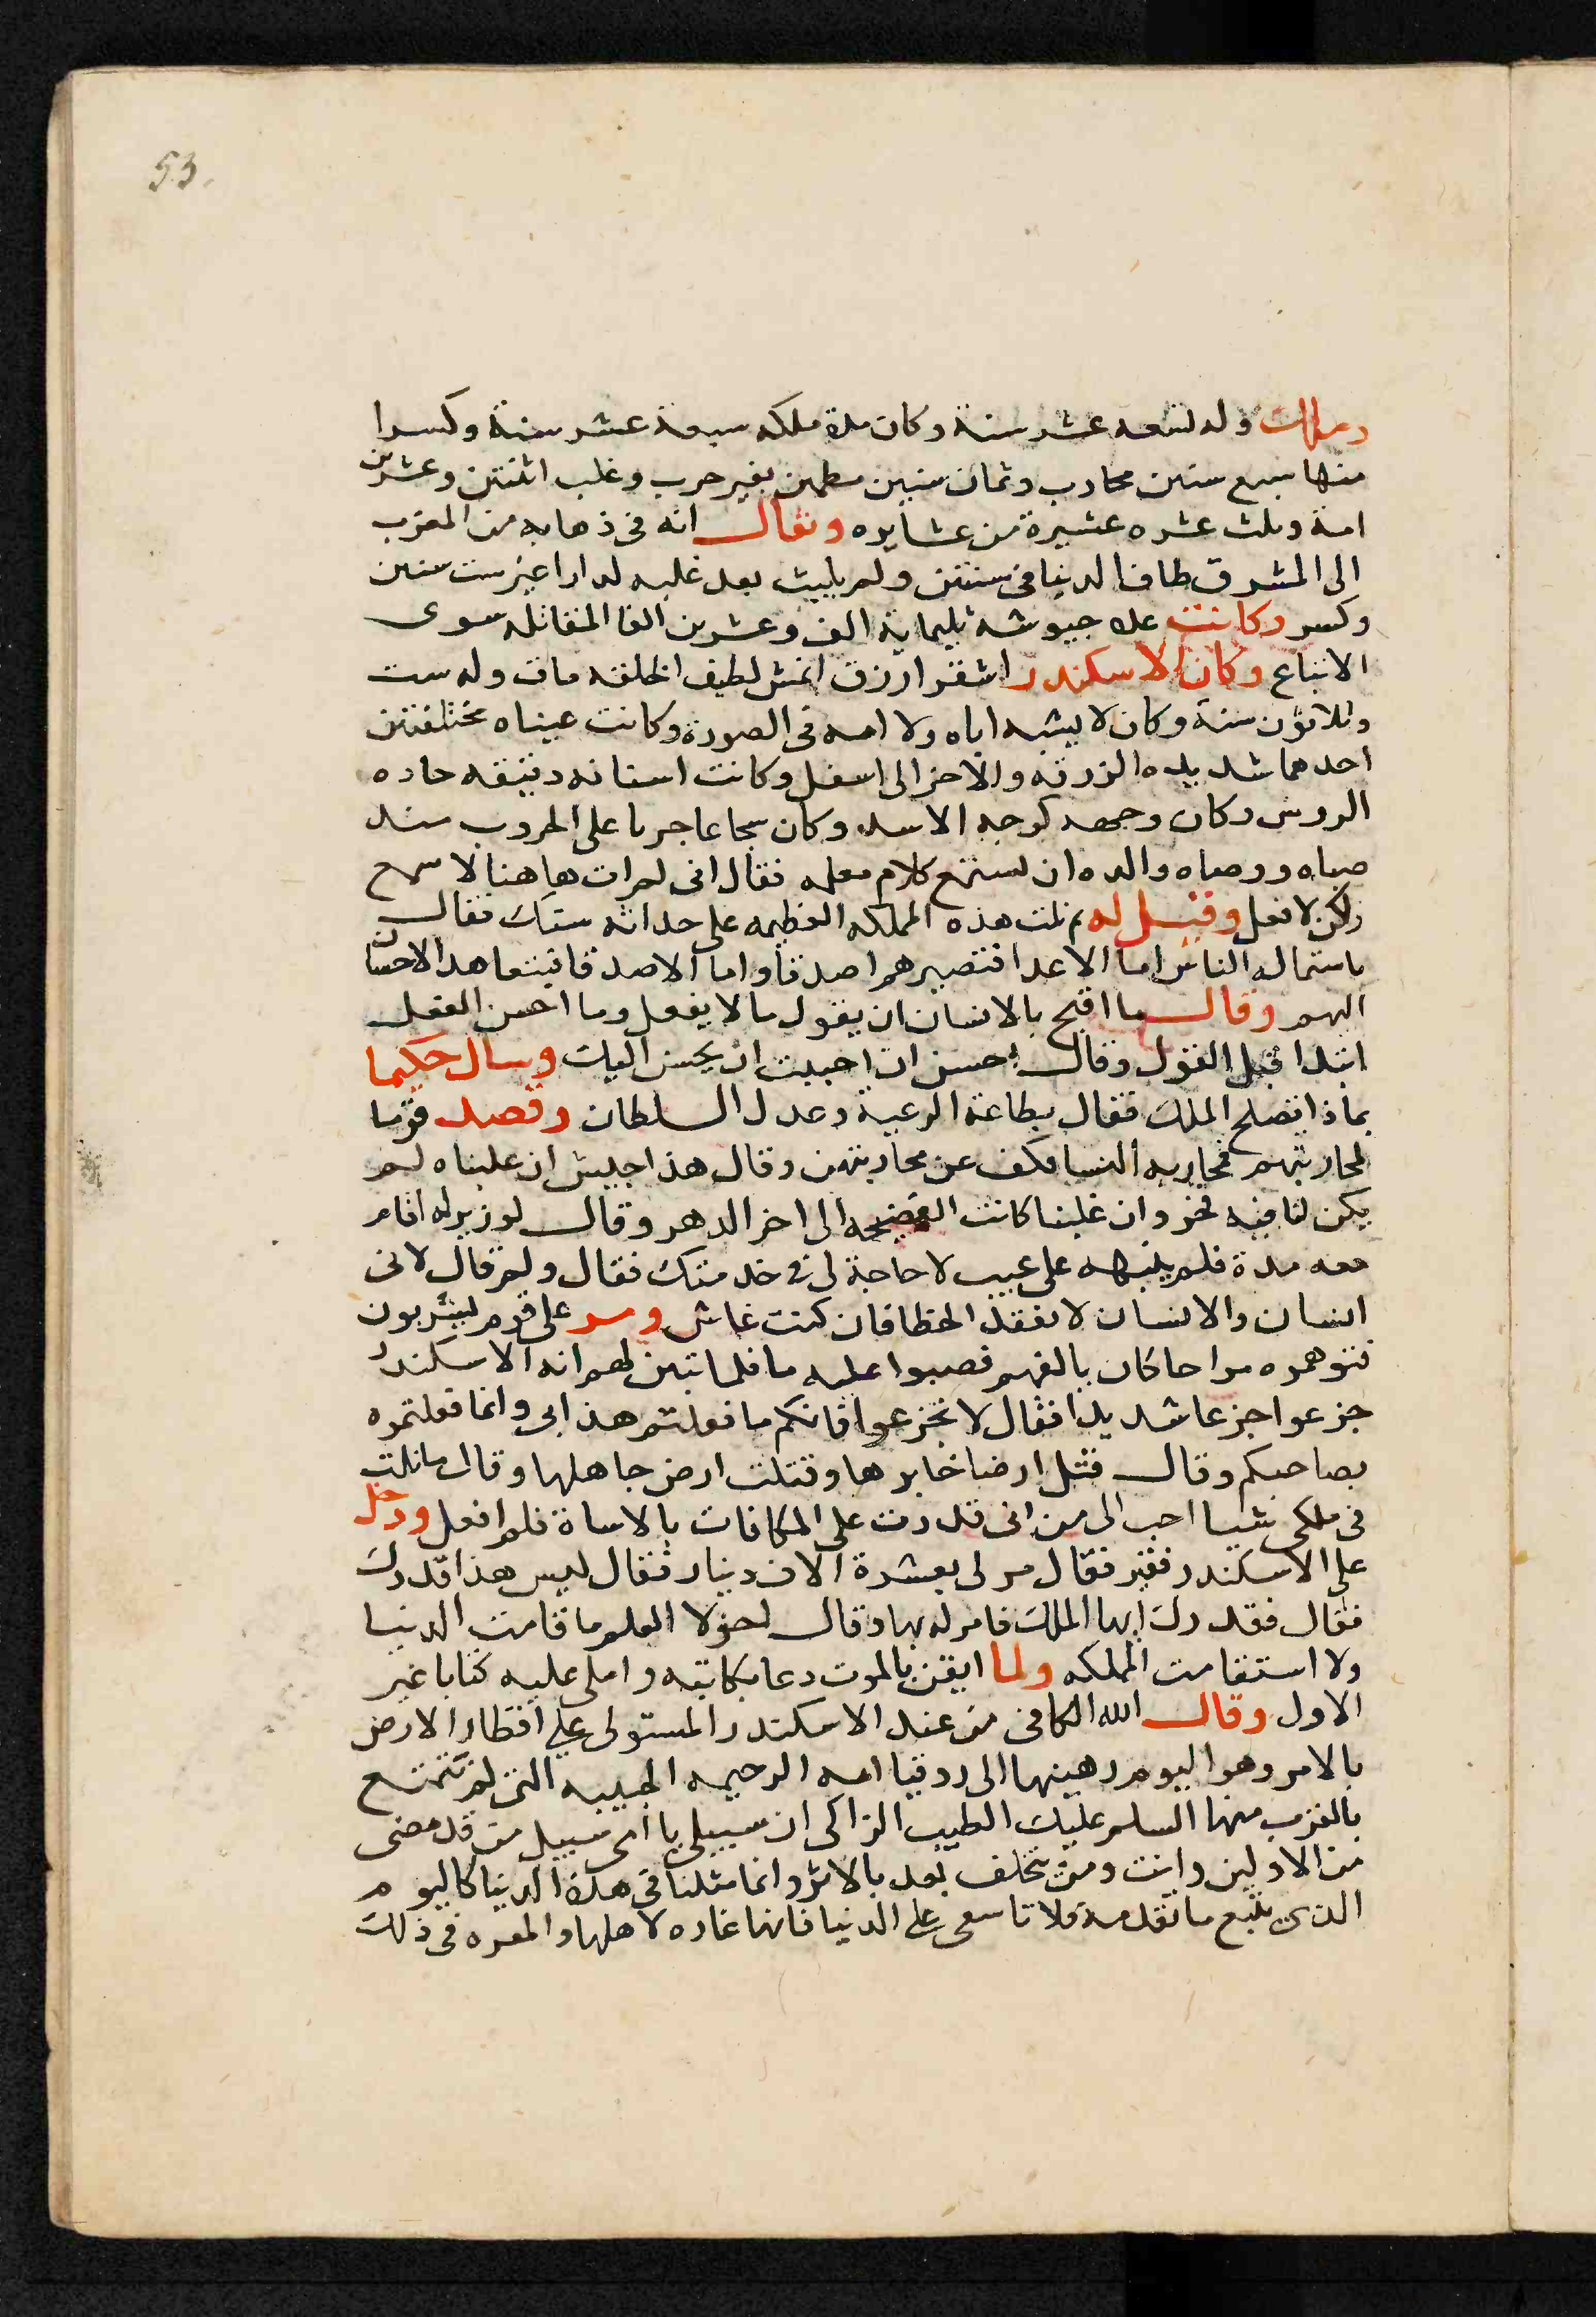 53.
وملك وله تسعه عشر سنة وكان مدة ملكه سبعة عشر سنة وكسرا
منها سبع سنين محارب وثمان سنين مطمين بغير حرب وغلب اثنتين وعشرين
امة وثلث عشره عشيرة من عشايره ويقال انه في ذهابه من المغرب
الى المشرق طاف الدنيا في سنتين ولم يلبث بعد غلبه لدارا غير ست سنين
وكسر وكانت عدد جيوشه ثليماية الف وعشرين الفا المقاتله سوى
الاتباع وكان الاسكندر اشقر ازرق انمش لطيف الخلقه مات وله ست
وثلاثون سنة وكان لا يشبه اباه ولا امه في الصورة وكانت عيناه مختلفتين
احدهما شديده الزرقه والاخر الى اسفل وكانت اسنانه دقيقه حاده
الروس وكان وجهه كوجه الاسد وكان شجاعا جريا على الحروب منذ
صباه ووصاه والده ان يستمع كلام معلمه فقال انى لم ات هاهنا لاسمع
ولكن لافعل وقيل له بم نلت هذه المملكه العظيمه على حداثه سنك فقال
باستماله الناس اما الاعدا فتصيرهم اصدقا واما الاصدقا فيتعاهد الاحسان
اليهم وقال ما اقبح بالانسان ان يقول ما لا يفعل وما احسن الفعل
ابتدا قبل القول وقال احسن ان احببت ان يحسن اليك وسال حكيما
بماذا يصلح الملك فقال بطاعة الرعية وعدل السلطان وقصد قوما
لمحاربتهم فحاربه النسا فكف عن محاربتهن وقال هذا جيش ان غلبناه لم
يكن لنا فيه فخر وان غلبنا كانت الفضيحه الى اخر الدهر وقال لوزير له اقام
معه مدة فلم ينبهه على عيب لا حاجة لى في خدمتك فقال ولم قال لانى
انسان والانسان لا يفقد الخطا فان كنت غاش ومر على قوم يشربون
فتوهموه مزاحا كان يالفهم فصبوا عليه ما فلما تبين لهم انه الاسكندر
جزعوا جزعا شديدا فقال لا تجزعوا فانكم ما فعلتم هذا بى وانما فعلتموه
بصاحبكم وقال قتل ارضا خابرها وقتلت ارض جاهلها وقال ما نلت
في ملكى شيا احب الى من انى قدرت على المكافات بالاساة فلم افعل ودخل
على الاسكندر فقير فقال مر لى بعشرة الاف دينار فقال ليس هذا قدرك
فقال فقدرك ايها الملك فامر له بها وقال لولا العلم ما قامت الدنيا
ولا استقامت المملكه ولما ايقن بالموت دعا بكاتبه واملى عليه كتابا غير
الاول وقال الله الكافى من عند الاسكندر المستولى على اقطار الارض
بالامر وهو اليوم رهينها الى روقيا امه الرحيمه الحبيبه التى لم تتمتع
بالقرب منها السلم عليك الطيب الزاكى ان سبيلى يا امى سبيل من قد مضى
من الاولين وانت ومن يتخلف بعد بالاثر وانما مثلنا فى هذه الدنيا كاليوم
الذى يتبع ما تقدمه فلا تاسفى على الدنيا فانها غاره لاهلها والمعره فى ذلك